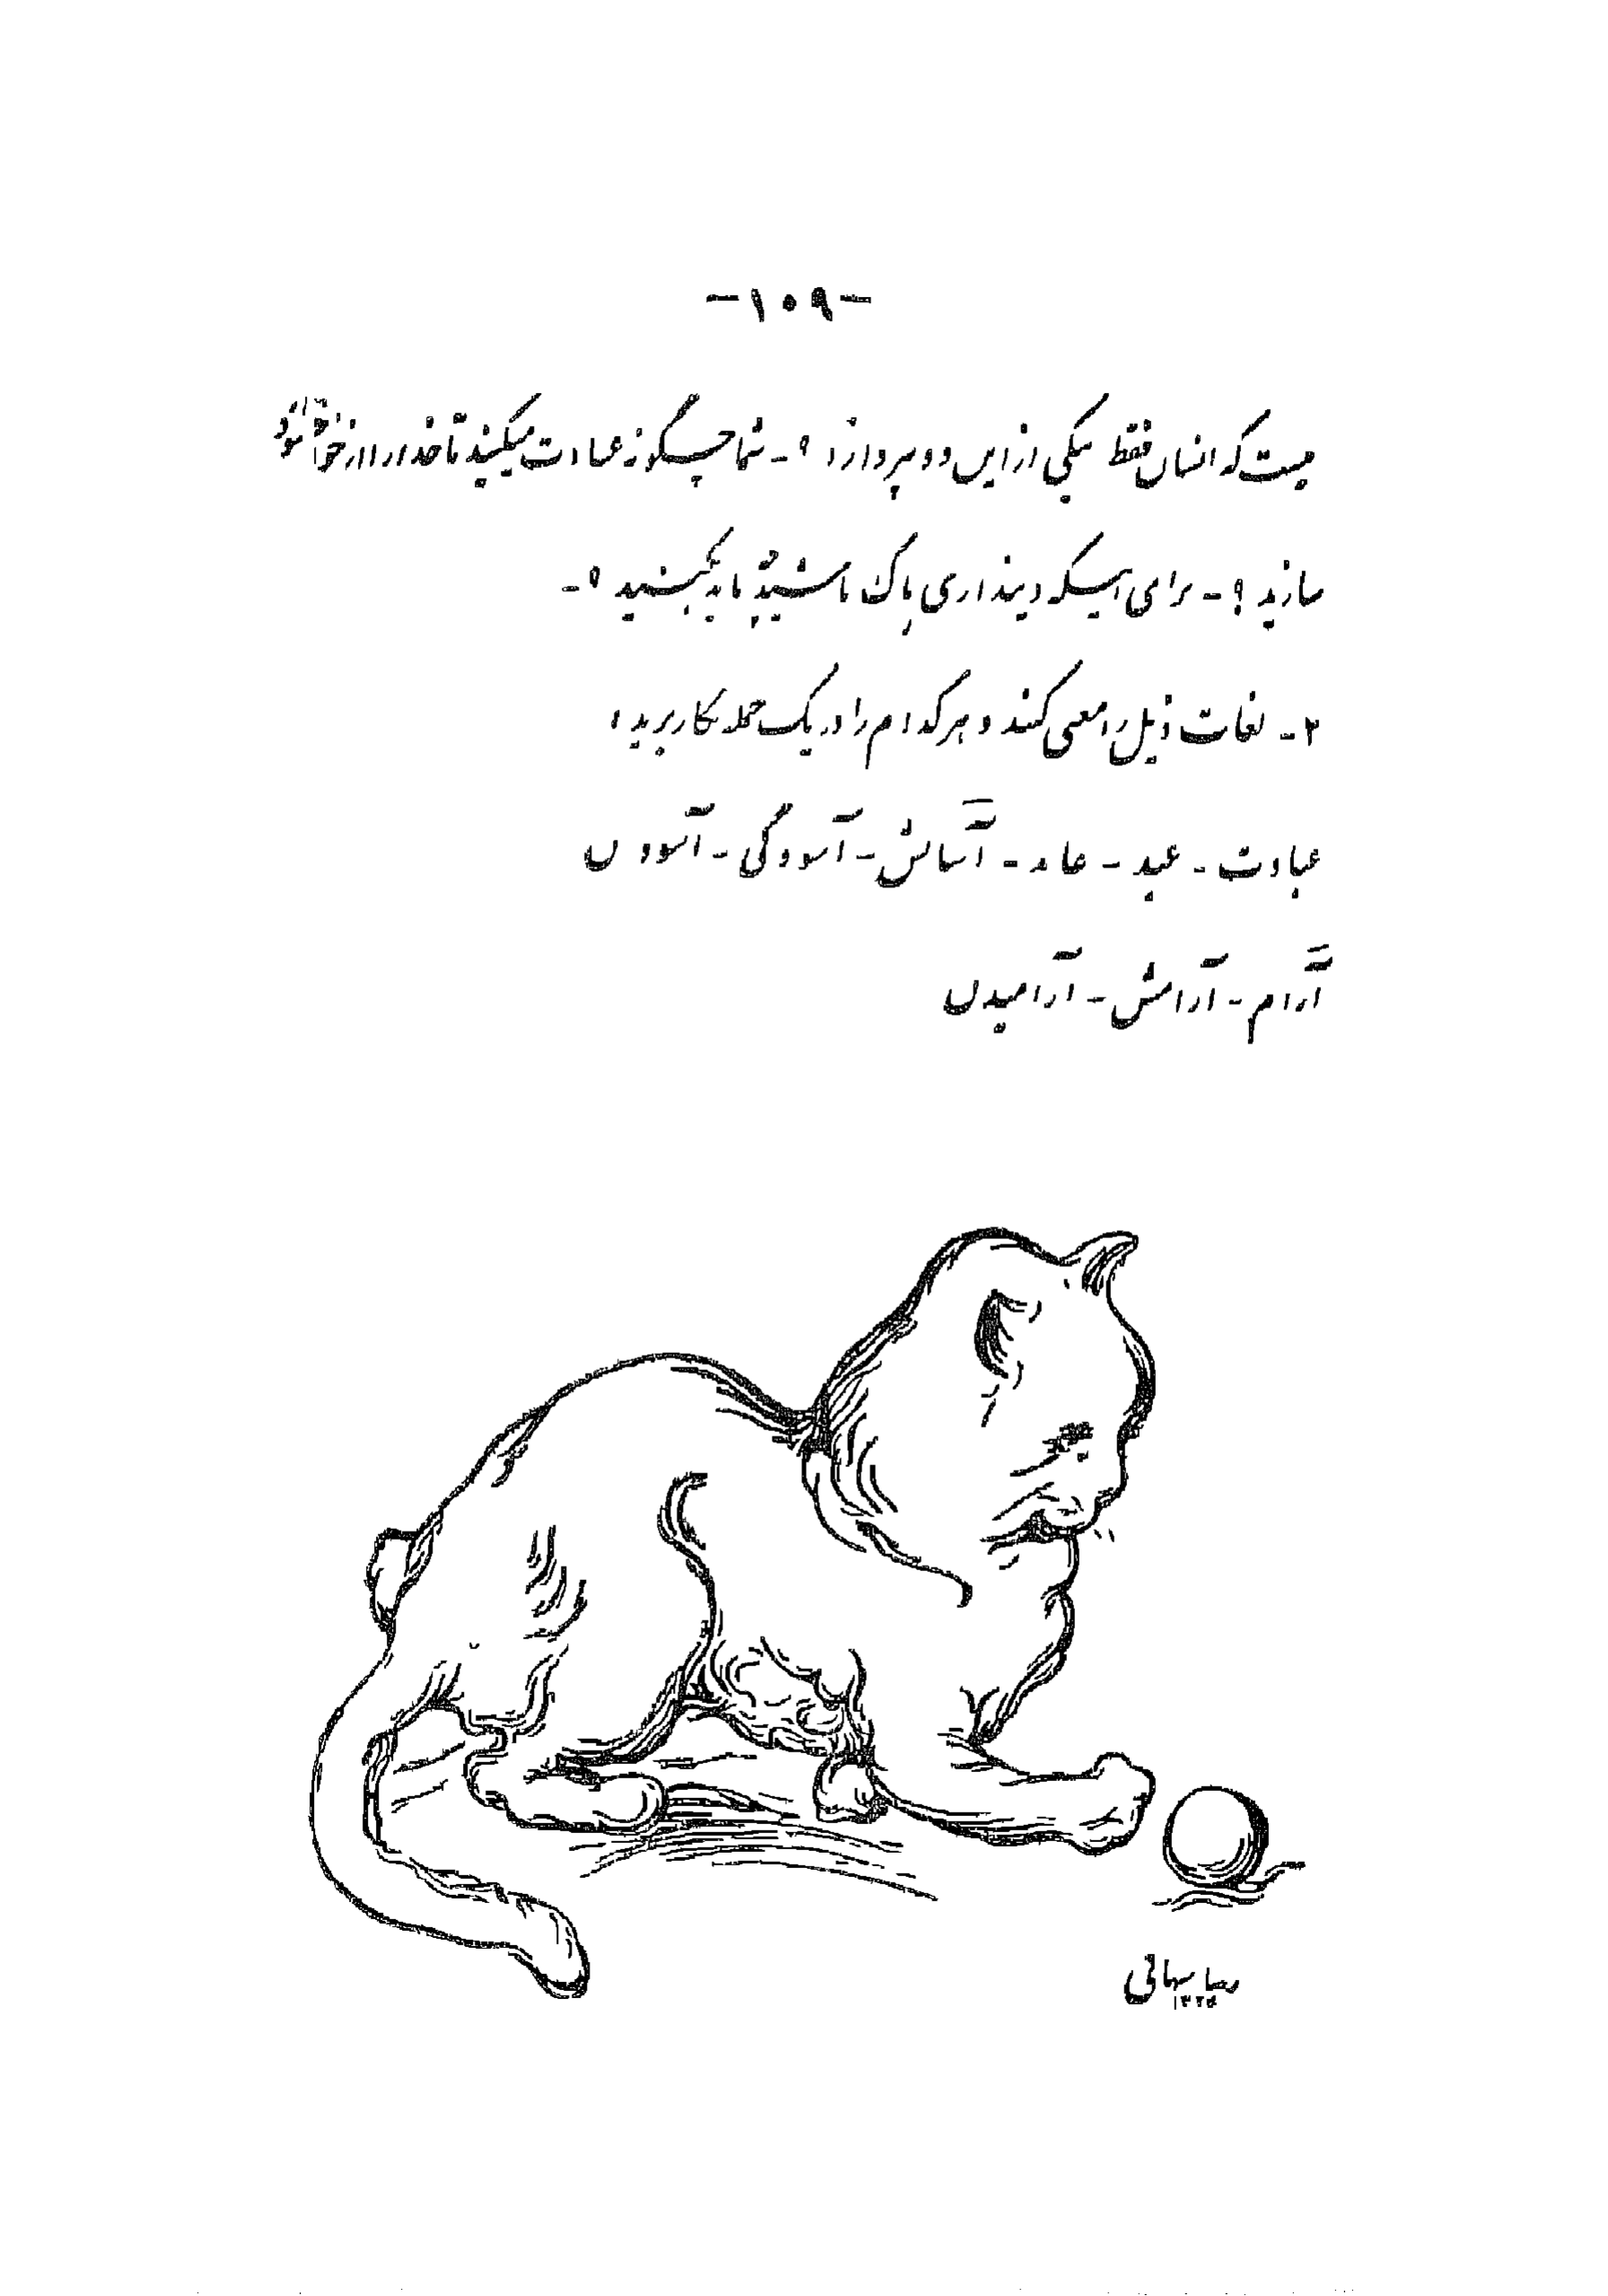 -۱۰۹-
چیست که انسان فقط بیکی از این دو بپردازد؟- شما چگونه عبادت میکنید تا خدا را از خود خشنود
سازید؟- برای اینکه دینداری پاک باشید چه باید بکنید؟-
۲- لغات ذیل را معنی کنید و هر کدام را در یک جمله بکار برید:
عبادت- عبد- عابد- آسایش- آسودگی- آسودن
آرام- آرامش- آرامیدن
بهائی